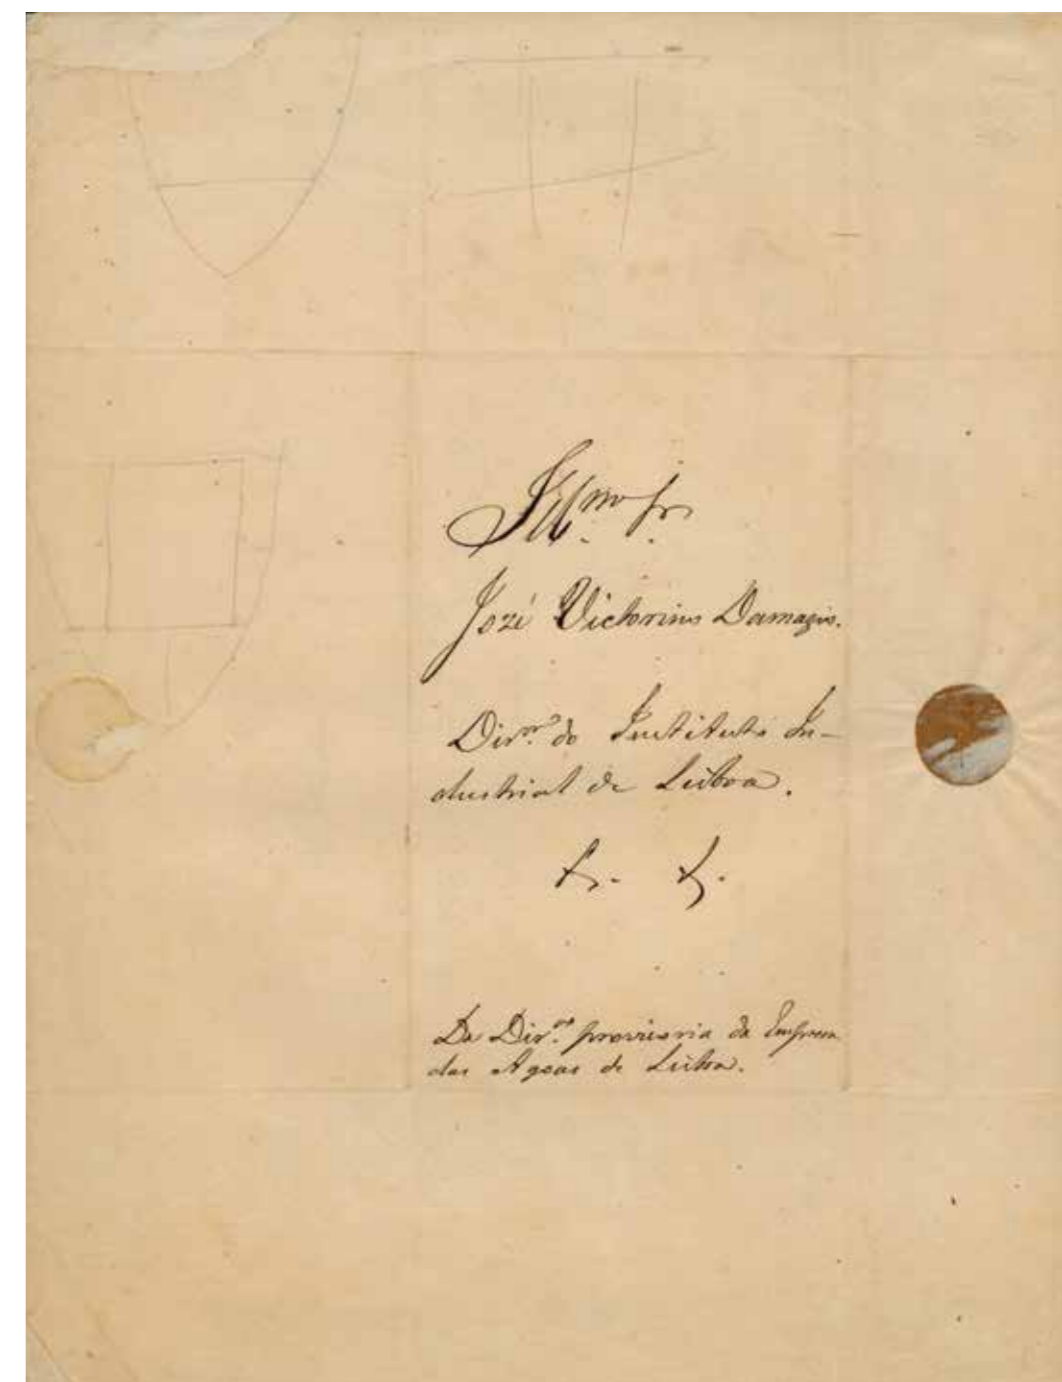 Ill.mo Sr.
Jozé Victorino Damazio.
Dir.or do Instituto In-
dustrial de Lisboa.
Da Dir.ão provisoria da Empreza
das Agoas de Lisboa.